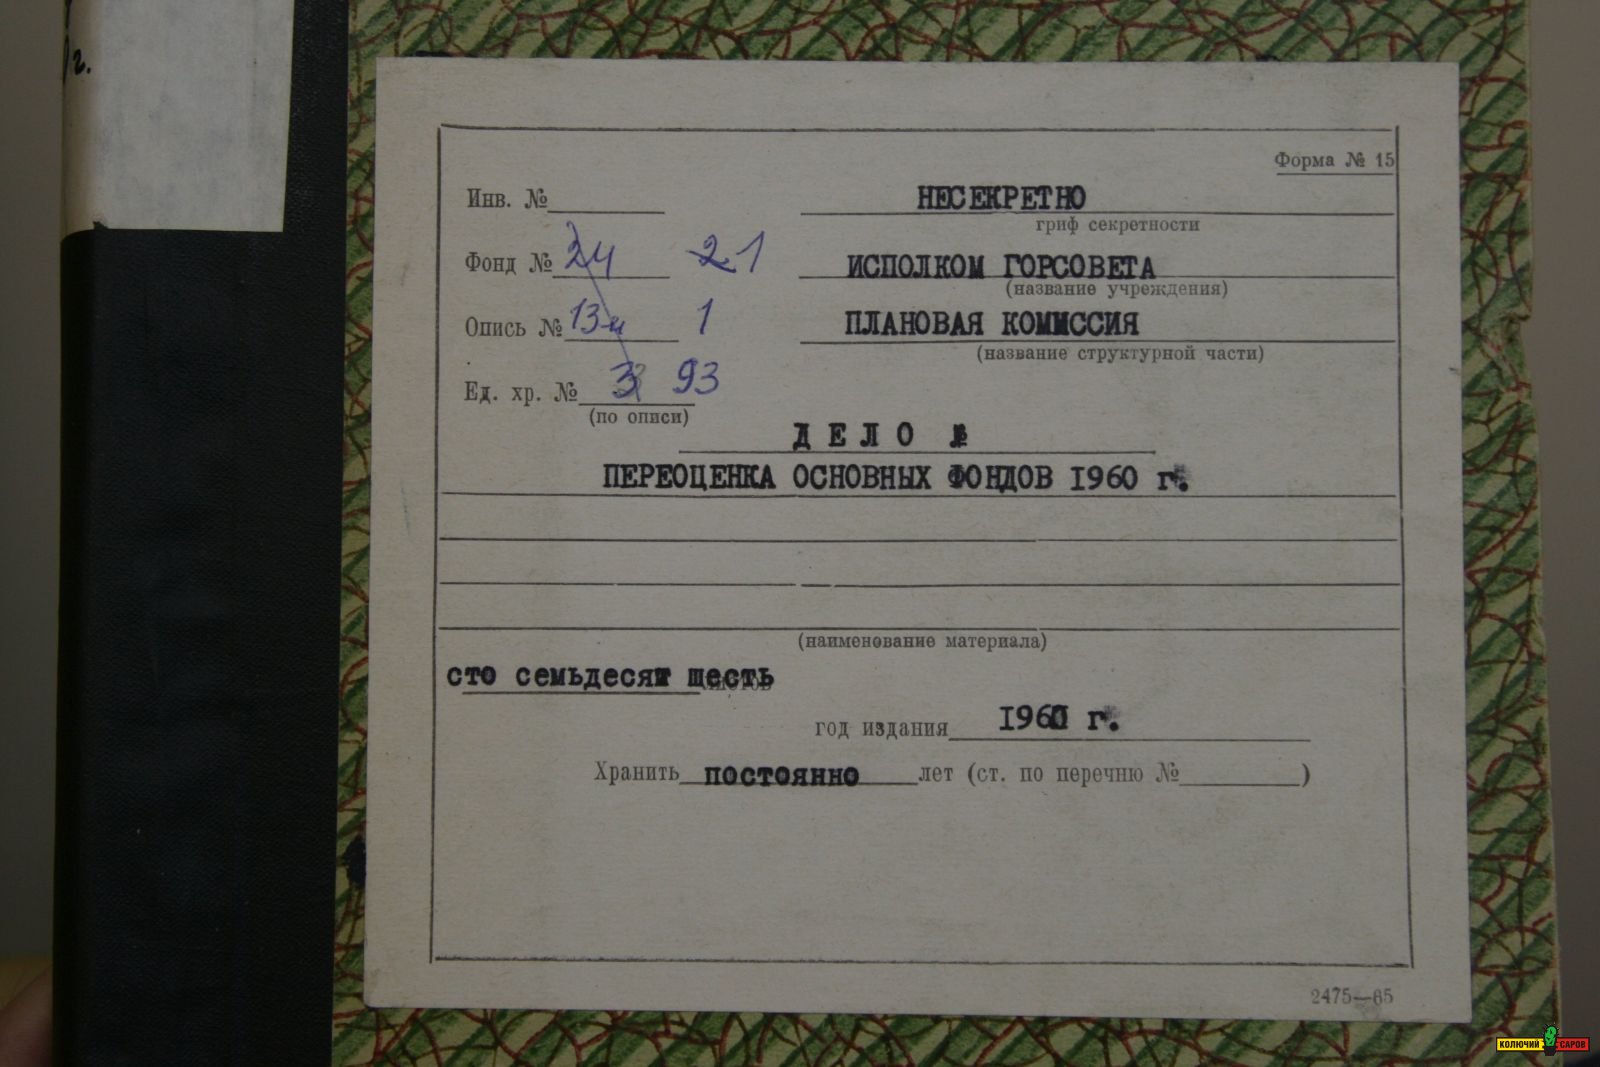 г.
Форма № 15
Инв. №
НЕСЕКРЕТНО
гриф секретности
Фонд № 24 21
ИСПОЛКОМ ГОРСОВЕТА
(название учреждения)
Опись № 13-и 1
ПЛАНОВАЯ КОМИССИЯ
(название структурной части)
Ед. хр. № 3 93
(по описи)
ДЕЛО №
ПЕРЕОЦЕНКА ОСНОВНЫХ ФОНДОВ 1960 г.
(наименование материала)
сто семьдесят шесть
листов
год издания 1960 г.
Хранить постоянно лет (ст. по перечню № )
2475—65
КОЛЮЧИЙ САРОВ